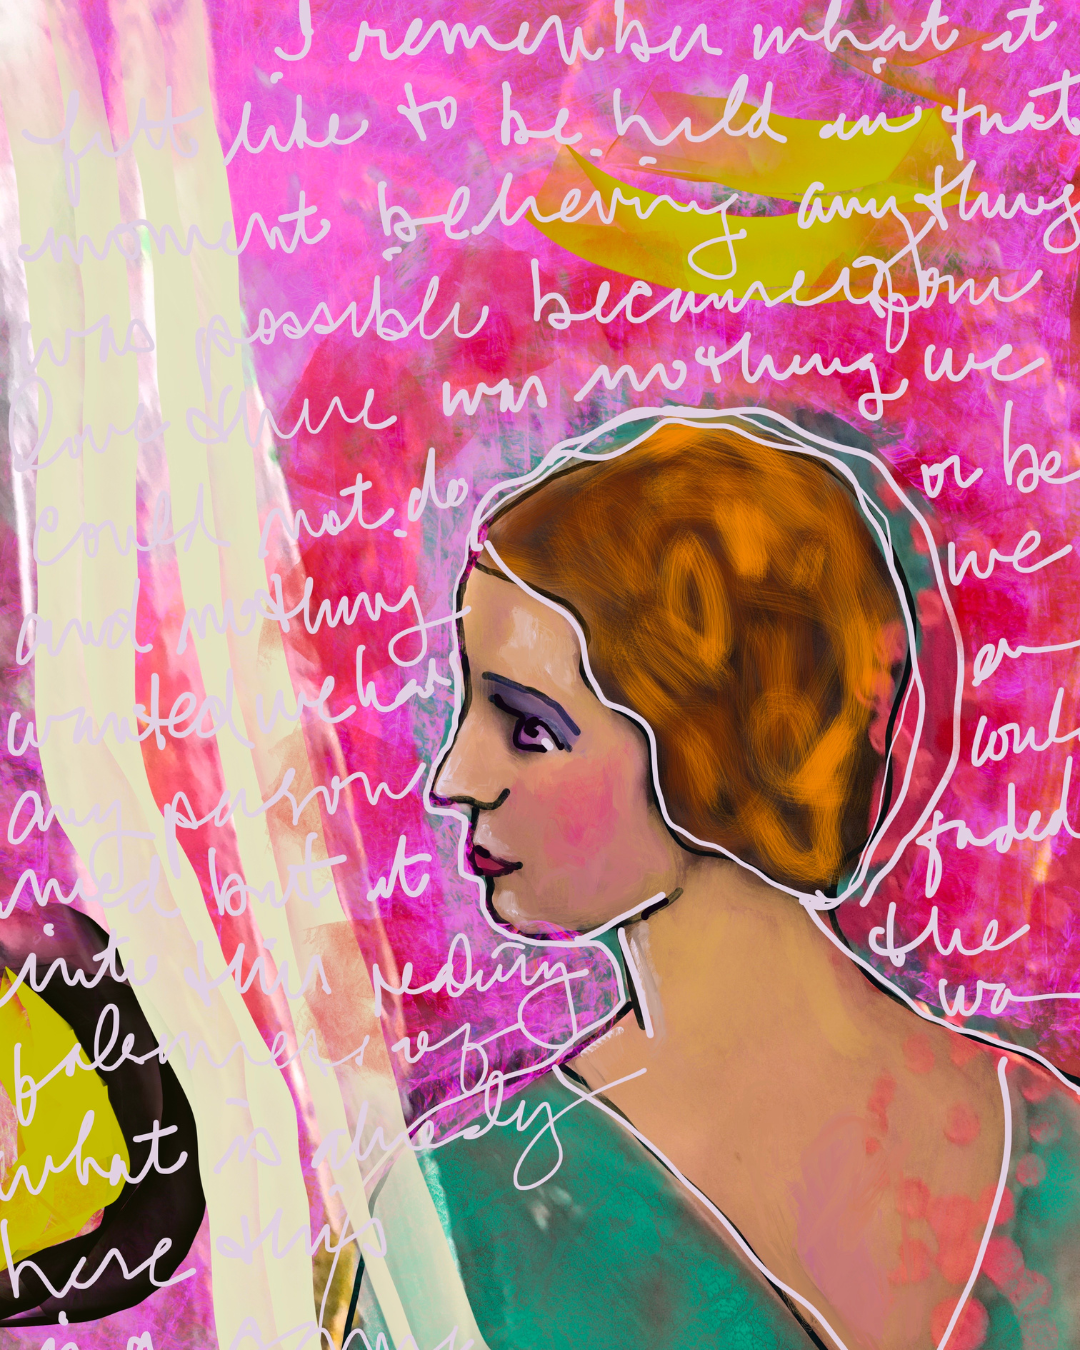 I remember what it
felt like to be held in that
moment believing anything
was possible because of our
love there was nothing we
could not do or be
and nothing we
wanted we had
any person coul
need but it faded
into this reality the
paleness of wa
what is already
here this
is a